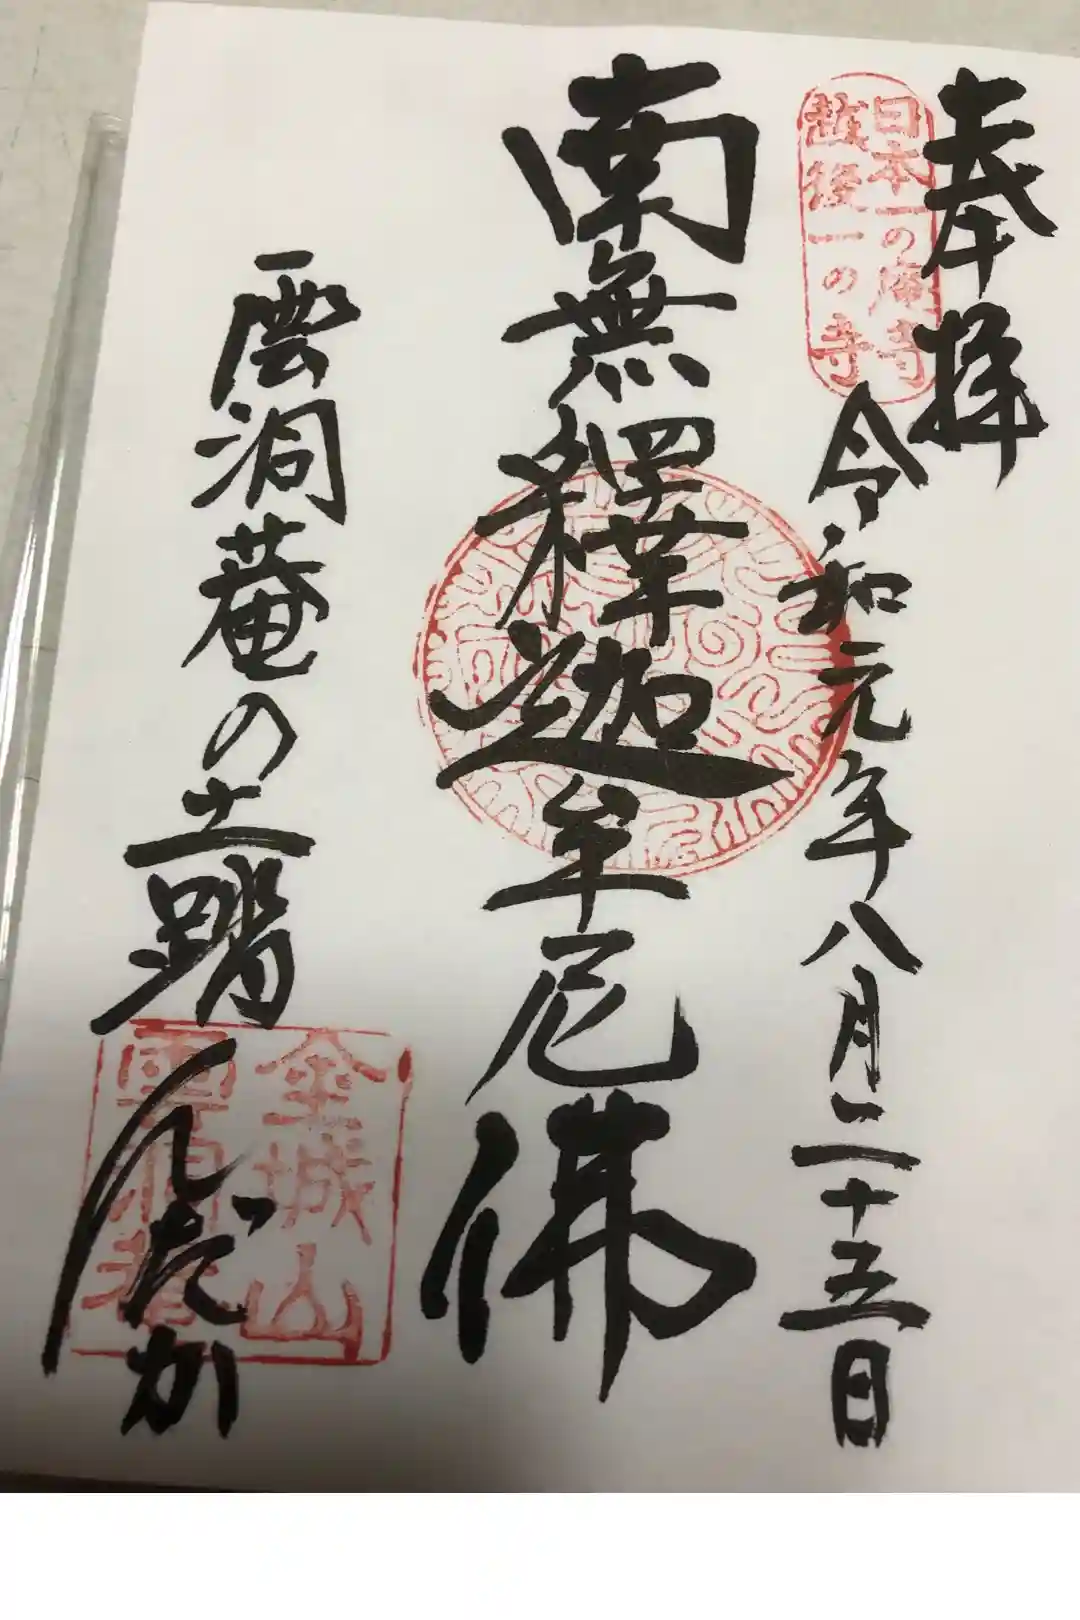 奉拝
日本一の庵寺
越後一の寺
令和元年八月二十五日
南無釋迦牟尼佛
雲洞庵の土踏んだか
金城山
雲洞菴